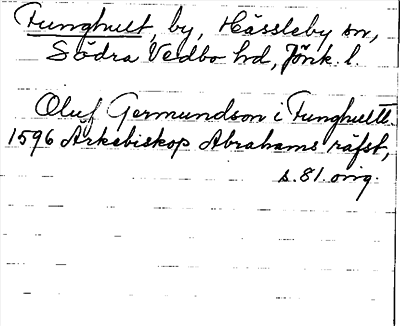 Funghult, by, Hässleby sn,
Södra Vedbo hd, Jönk. l.
Oluf Germundson i Funghultt.
1596 Ärkebiskop Abrahams räfst,
s. 81. orig.